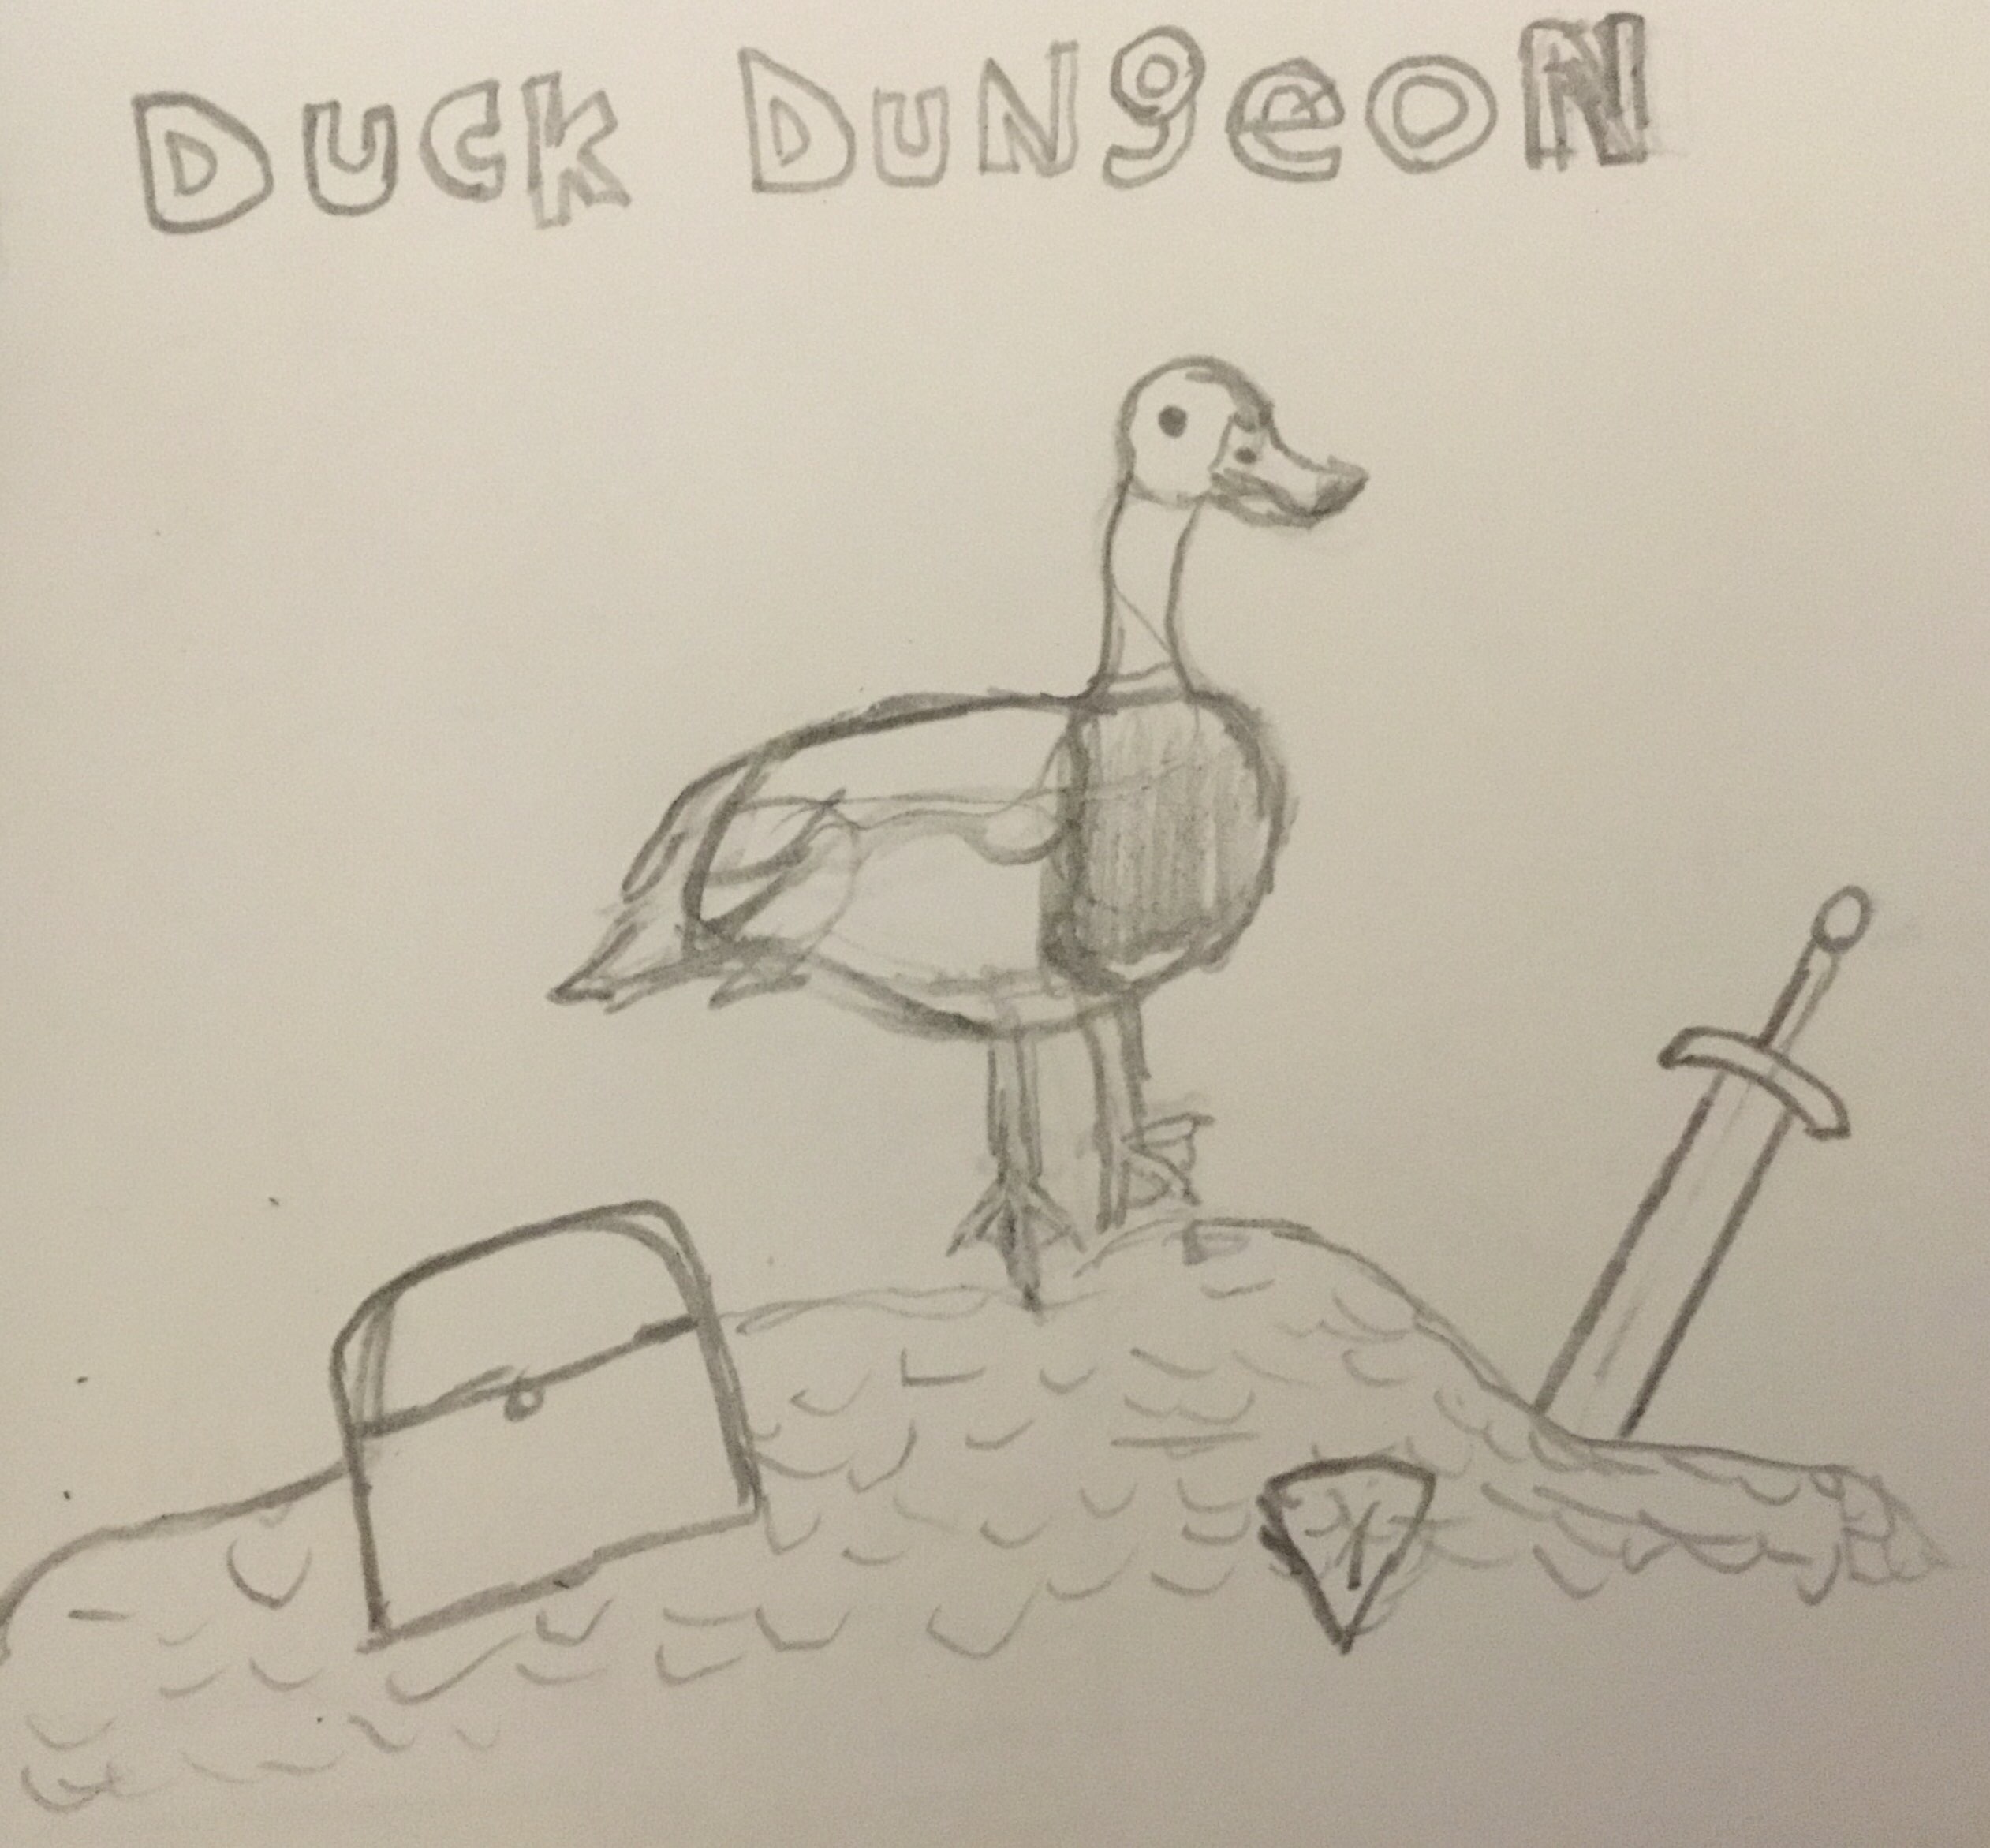 DUCK DUNgeoN